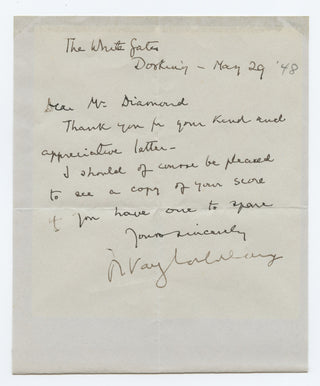 The White Gates
Dorking – May 29 '48
Dear Mr Diamond
Thank you for your kind and
appreciative letter –
I should of course be pleased
to see a copy of your score
if you have one to spare
Yours sincerely
R Vaughan Williams